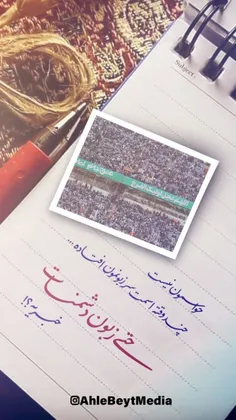 Subject:
حواسمون نیست
چند وقته اسمت سر زبونمون افتاده...
حتی زبون دشمنات
خبریه؟!
@AhleBeytMedia